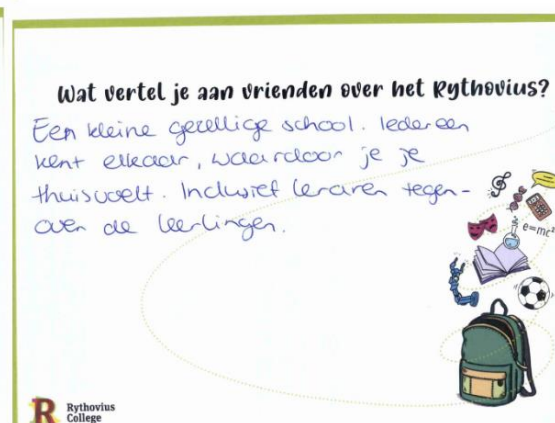 Wat vertel je aan vrienden over het Rythovius?
Een kleine gezellige school. Iedereen
kent elkaar, waardoor je je
thuisvoelt. Inclusief leraren tegen-
over de leerlingen.
e=mc²
R Rythovius
College